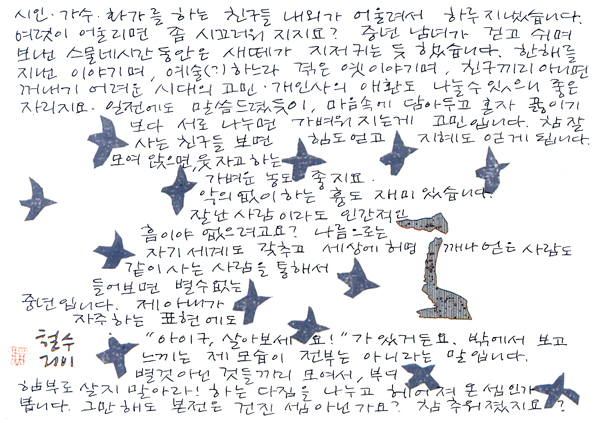 시인·가수·화가를 하는 친구들 내외가 어울려서 하루 지냈습니다.
여럿이 어울리면 좀 시끄러워지지요? 중년 남녀가 걷고 쉬며
보낸 스물네시간 동안은 새떼가 지저귀는 듯 했습니다. 한해를
지낸 이야기며, 예술(?)하느라 겪은 옛이야기며, 친구끼리 아니면
꺼내기 어려운 시대의 고민·개인사의 애환도 나눌 수 있으니 좋은
자리지요. 일전에도 말씀드렸듯이, 마음속에 담아두고 혼자 끓이기
보다 서로 나누면 가벼워지는게 고민입니다. 참 잘
사는 친구들 보면 힘도 얻고 지혜도 얻게 됩니다.
모여 앉으면, 웃자고 하는
가벼운 농도 좋지요.
악의없이 하는 흉도 재미있습니다.
잘난 사람이라도 인간적인
흠이야 없으려고요? 나름으로는
자기세계도 갖추고 세상에 허명 깨나 얻은 사람도
같이 사는 사람을 통해서
들어보면 별수없는
중년입니다. 제 아내가
자주하는 표현에도
"아이구, 살아보세요!"가 있거든요. 밖에서 보고
느끼는 제 모습이 전부는 아니라는 말입니다.
별것 아닌 것들끼리 모여서,
함부로 살지 말아라! 하는 다짐을 나누고 헤어져 온 셈인가
봅니다. 그만해도 본전은 건진 셈 아닌가요? 참 추워졌지요?
철수
2001